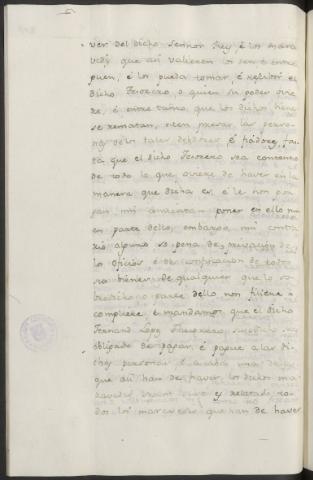 ver del dicho Sennor Rey, é los mara
vedis que asi valieren los den é entre
guen, é los pueda tomar, é resçibir el
dicho Tesorero, o quien su poder ovie
re, é entre tanto que los dichos biene
se rematan, esten presas las perso
nas de los tales debdores, é fiadores, fas
ta que el dicho Tesorero sea contento
de todo lo que oviere de haver en la
manera que dicha es, é le non pon
gan nin consientan poner en ello nin
en parte dello, embargo, nin contra
rio alguno so pena de privacion de
los oficios, é de confiscacion de todos
sus bienes de qualquier que lo so
bredicho o parte dello non ficiere é
compliere é mandamos que el dicho
Ferrand Lopez Thesorero, sea
obligado de pagar, é pague a las di
chas personas
que asi han de haver los dichos ma
ravedis
dos los maravedis que han de haver